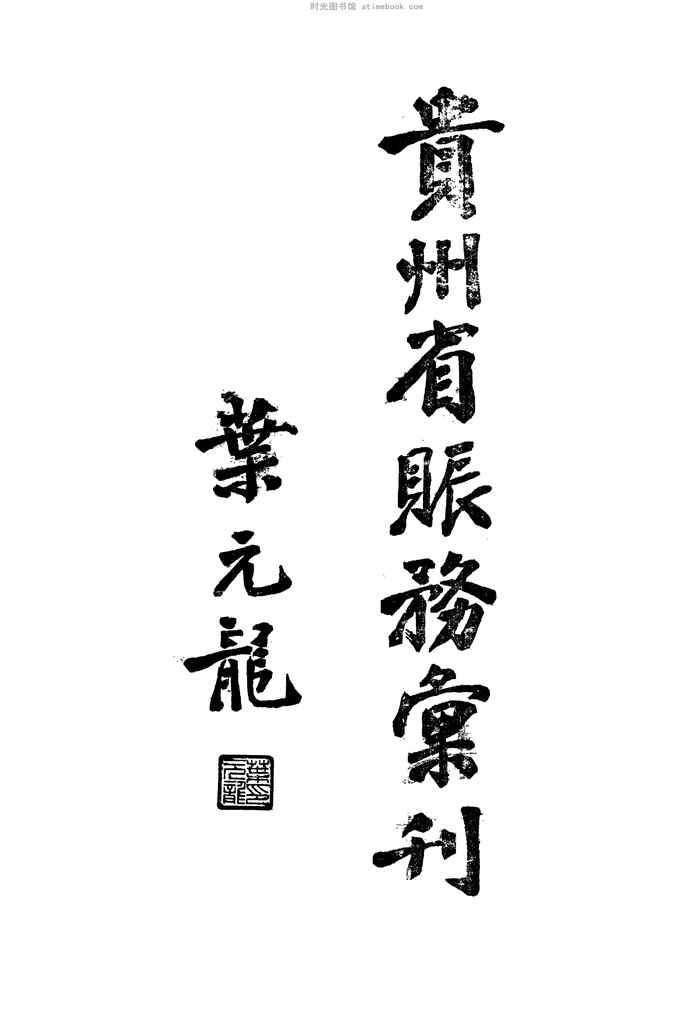 时光图书馆 atimebook.com
貴州省賑務彙刊
葉元龍
葉元龍印